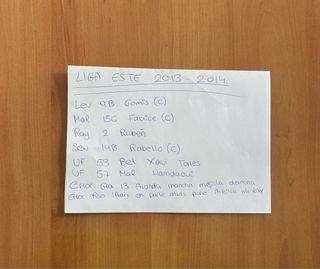 LIGA ESTE 2013 - 2014
Lev 9B Gomis (C)
Mal 15C Fabrice (C)
Ray 2 Rubén
Sev 14B Rabello (C)
UF 53 Bet Xavi Torres
UF 57 Mal Hamdaoui
Error Gra 13 Aranda mancha mejilla derecha
Error Rso en parte atrás pone